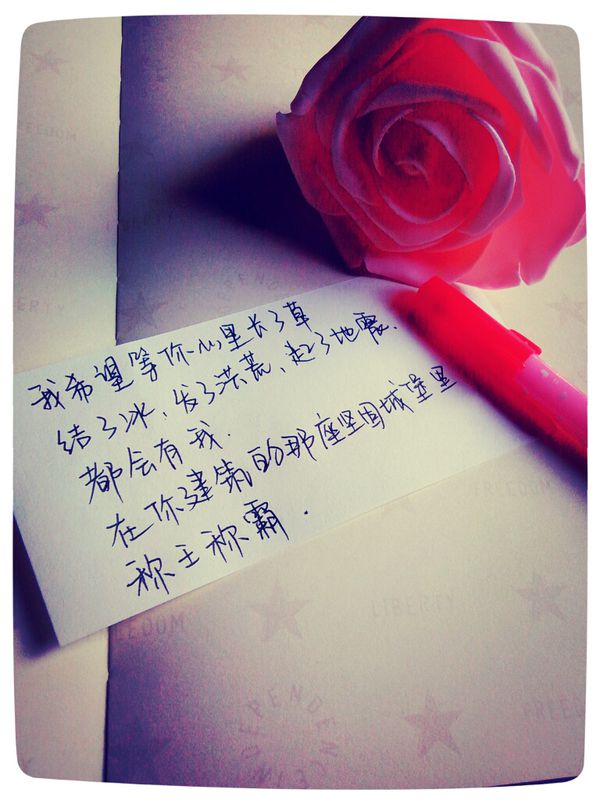 我希望等你心里长了草
结了冰、发了洪荒、起了地震.
都会有我.
在你建筑的那座坚固城堡里
称王称霸.
FREEDOM
LIBERTY
INDEPENDENCE
FREEDOM
LIBERTY
FREEDOM
INDEPENDENCE